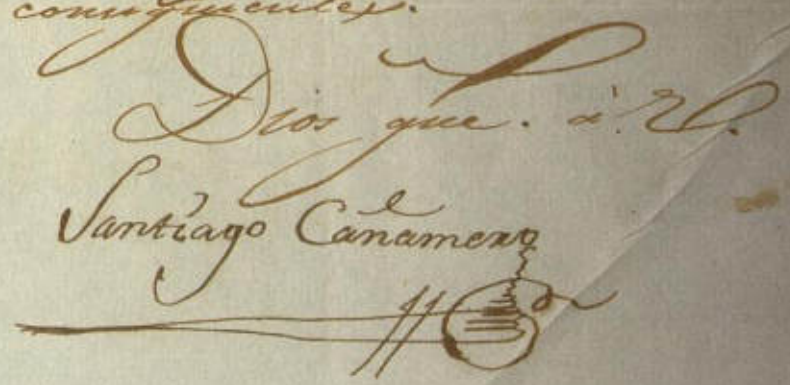 consiguientes.
Dios gue. á V.
Santiago Cañamero